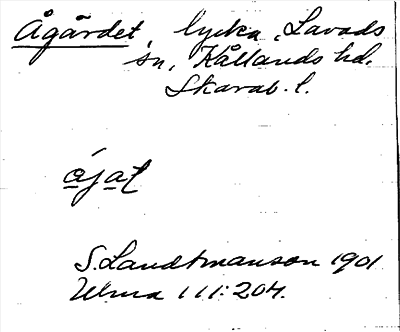 Ågärdet, lycka, Lavads
sn, Kållands hd.
Skarab. l.
ájat
S. Landtmanson 1901
Ulma 111:204.